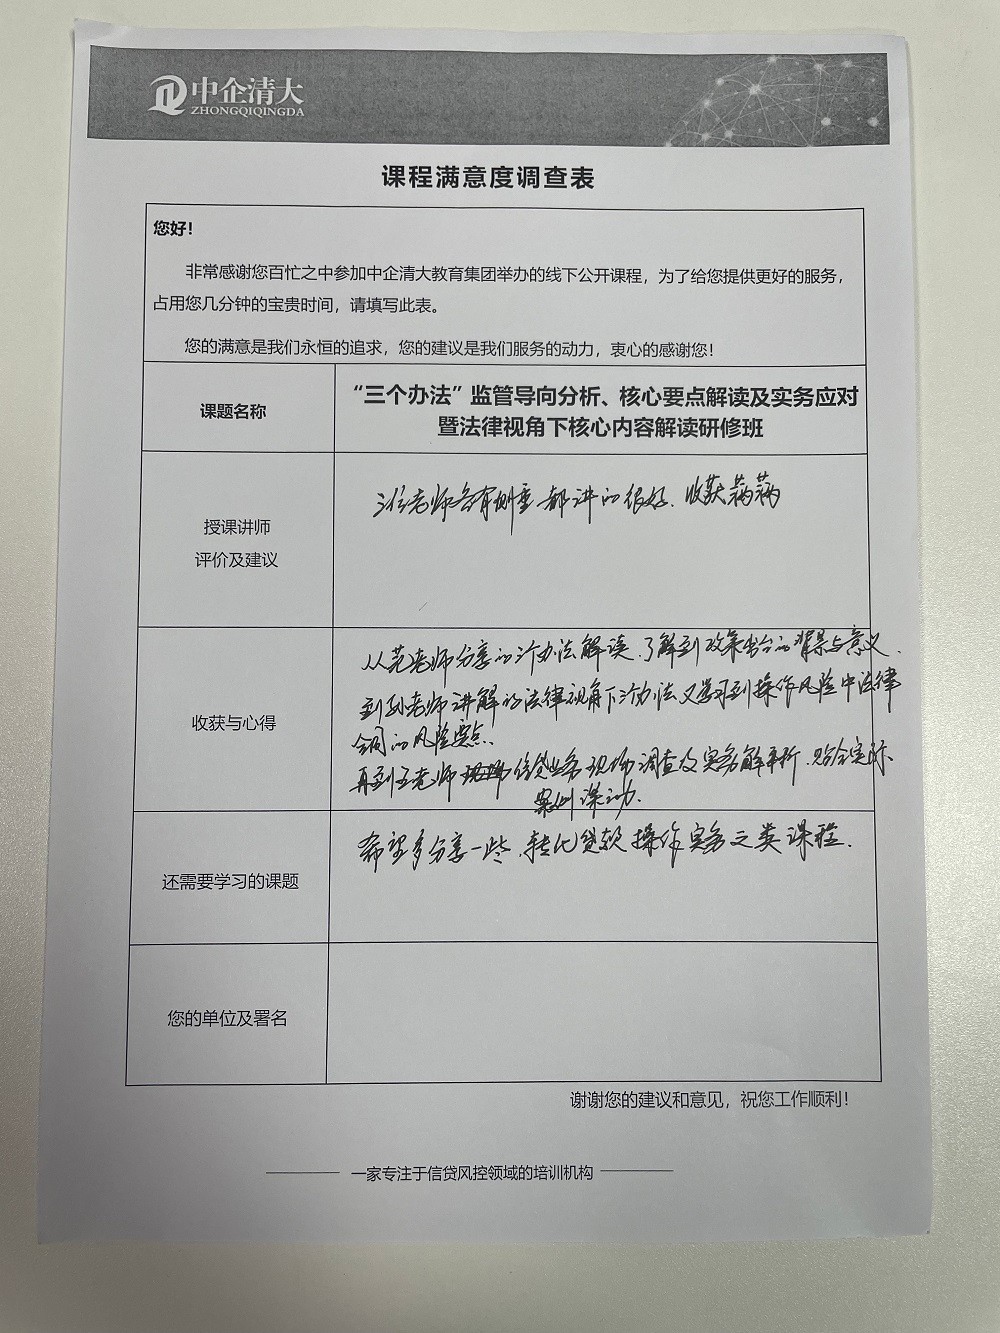 中企清大
ZHONGQIQINGDA
课程满意度调查表
您好！
非常感谢您百忙之中参加中企清大教育集团举办的线下公开课程，为了给您提供更好的服务，
占用您几分钟的宝贵时间，请填写此表。
您的满意是我们永恒的追求，您的建议是我们服务的动力，衷心的感谢您！
课题名称
“三个办法”监管导向分析、核心要点解读及实务应对
暨法律视角下核心内容解读研修班
授课讲师
评价及建议
三位老师各有侧重 都讲的很好、收获满满
收获与心得
从范老师分享的三个办法解读、了解到政策出台的背景与意义、
到孙老师讲解的法律视角下三个办法 又学习到操作风险中法律
合同的风险要点、
再到王老师 信贷业务现场调查及实务解析、结合实际
案例 课
还需要学习的课题
希望多分享一些、 贷款操作实务之类课程、
您的单位及署名
谢谢您的建议和意见，祝您工作顺利！
一家专注于信贷风控领域的培训机构